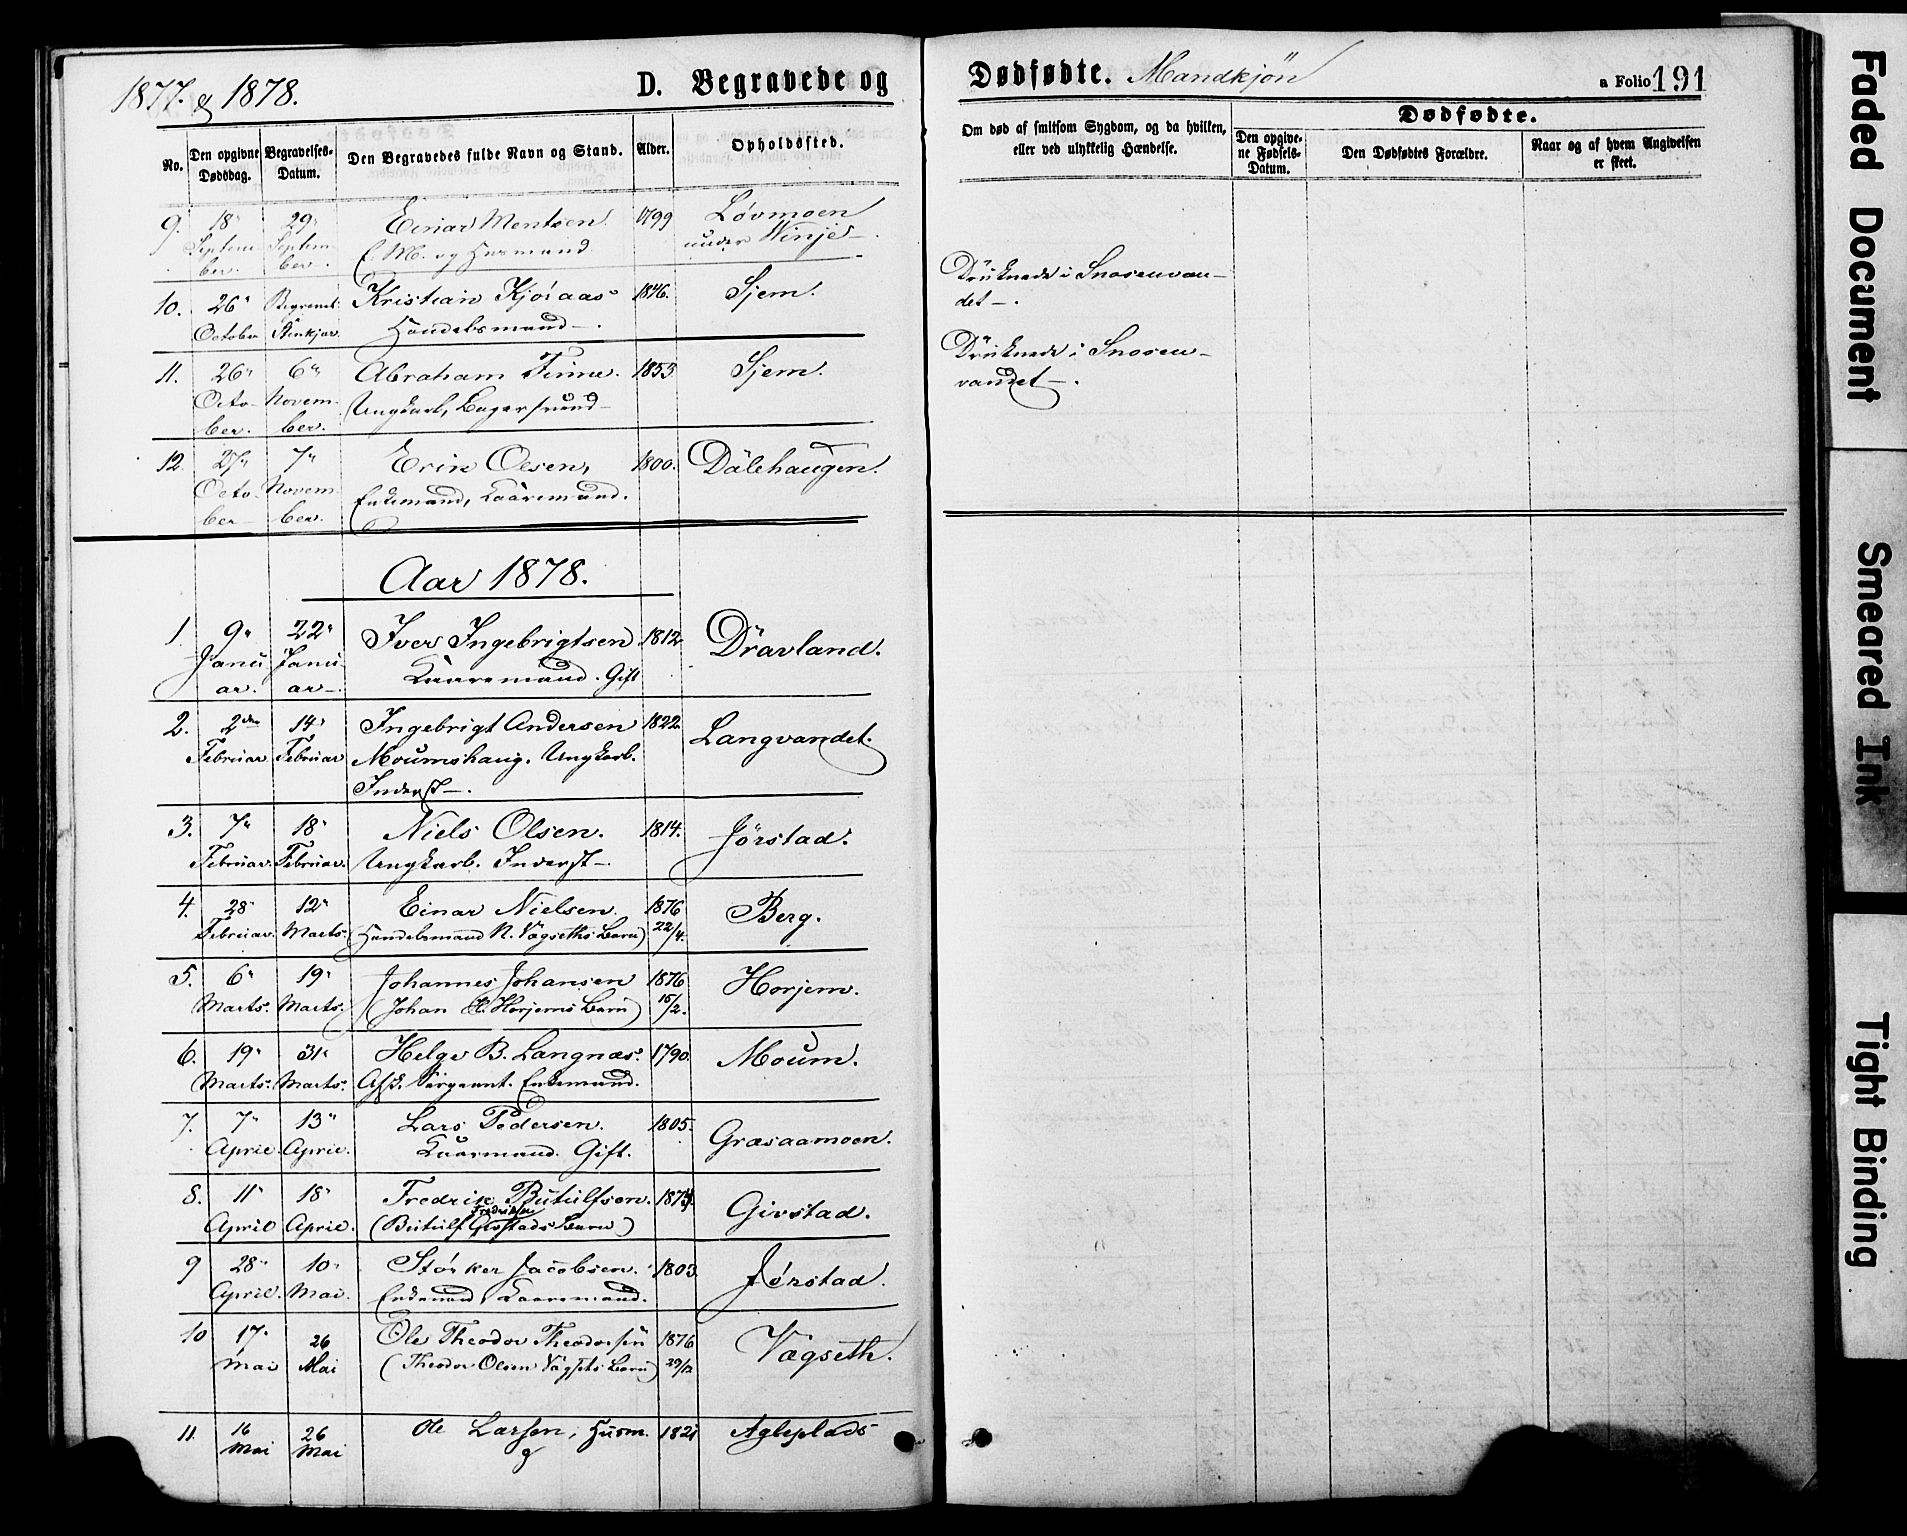 1877. & 1878.
D. Begravede og
Dødfødte. Mandkjøn
a Folio 191
No.
Den opgivne Dødsdag.
Begravelses-Datum.
Den Begravedes fulde Navn og Stand.
Alder.
Opholdssted.
Om død af smitsom Sygdom, og da hvilken, eller ved ulykkelig Hændelse.
Dødfødte.
Den opgivne Fødsels-Datum.
Den Dødfødtes Forældre.
Naar og af hvem Angivelsen er skeet.
9. 18" September. 29" September. Einar Mentsen 1799 Løvmoen
f. M. og Husmand under Winje
10. 26" October Begravet Stenkjær Kristian Kjøraas 1846. Sjem.
Handelsmand
Druknede i Snaasenvan-
det
11. 26" October. 6" November. Abraham Finne. 1855 Sjem.
Ungkarl, Lagersvend
Druknede i Snaasen-
vandet
12. 27" October 7" November. Erik Olsen, 1800. Dalehaugen.
Enkemand, Kaaremand.
Aar 1878.
1. 9" Januar. 22" Januar Iver Ingebrigtsen 1812 Dravland.
Kaaremand. Gift
2. 2den Februar 14" Februar Ingebrigt Andersen 1822 Langvandet.
Moumshaug. Ungkarl.
Inderst.
3. 7" Februar. 18" Februar. Niels Olsen. 1814. Jørstad.
Ungkarl. Inderst
4. 28" Februar. 12" Marts. Einar Nielsen. 1876 Berg.
(Handelsmand N. Vægseths Barn) 22/4.
5. 6" Marts. 19" Marts. Johannes Johansen 1876 Horjem.
(Johan Horjems Barn) 15/2.
6. 19" Marts. 31" Marts. Helge B. Langnæs. 1790. Moum.
Afsk. Sergeant. Enkemand.
7. 7" April 13" April. Lars Pedersen. 1805. Græsaamoen.
Kaarmand. Gift.
8. 11" April 18" April. Fredrik Butulfsen. 1874. Givstad.
Fredriksen
(Butulf Givstads Barn)
9 28" April. 10" Mai. Størker Jacobsen. 1803. Jørstad.
Enkemand, Kaaremand.
10 17" Mai 26 Mai Ole Theodor Theodorsen 1876 Vægseth.
(Theodor Olsen Vægsets Barn) 29/12
11. 16 Mai 26 Mai Ole Larsen, Husm. 1821 Agleplads
Faded Document
Smeared Ink
Tight Binding